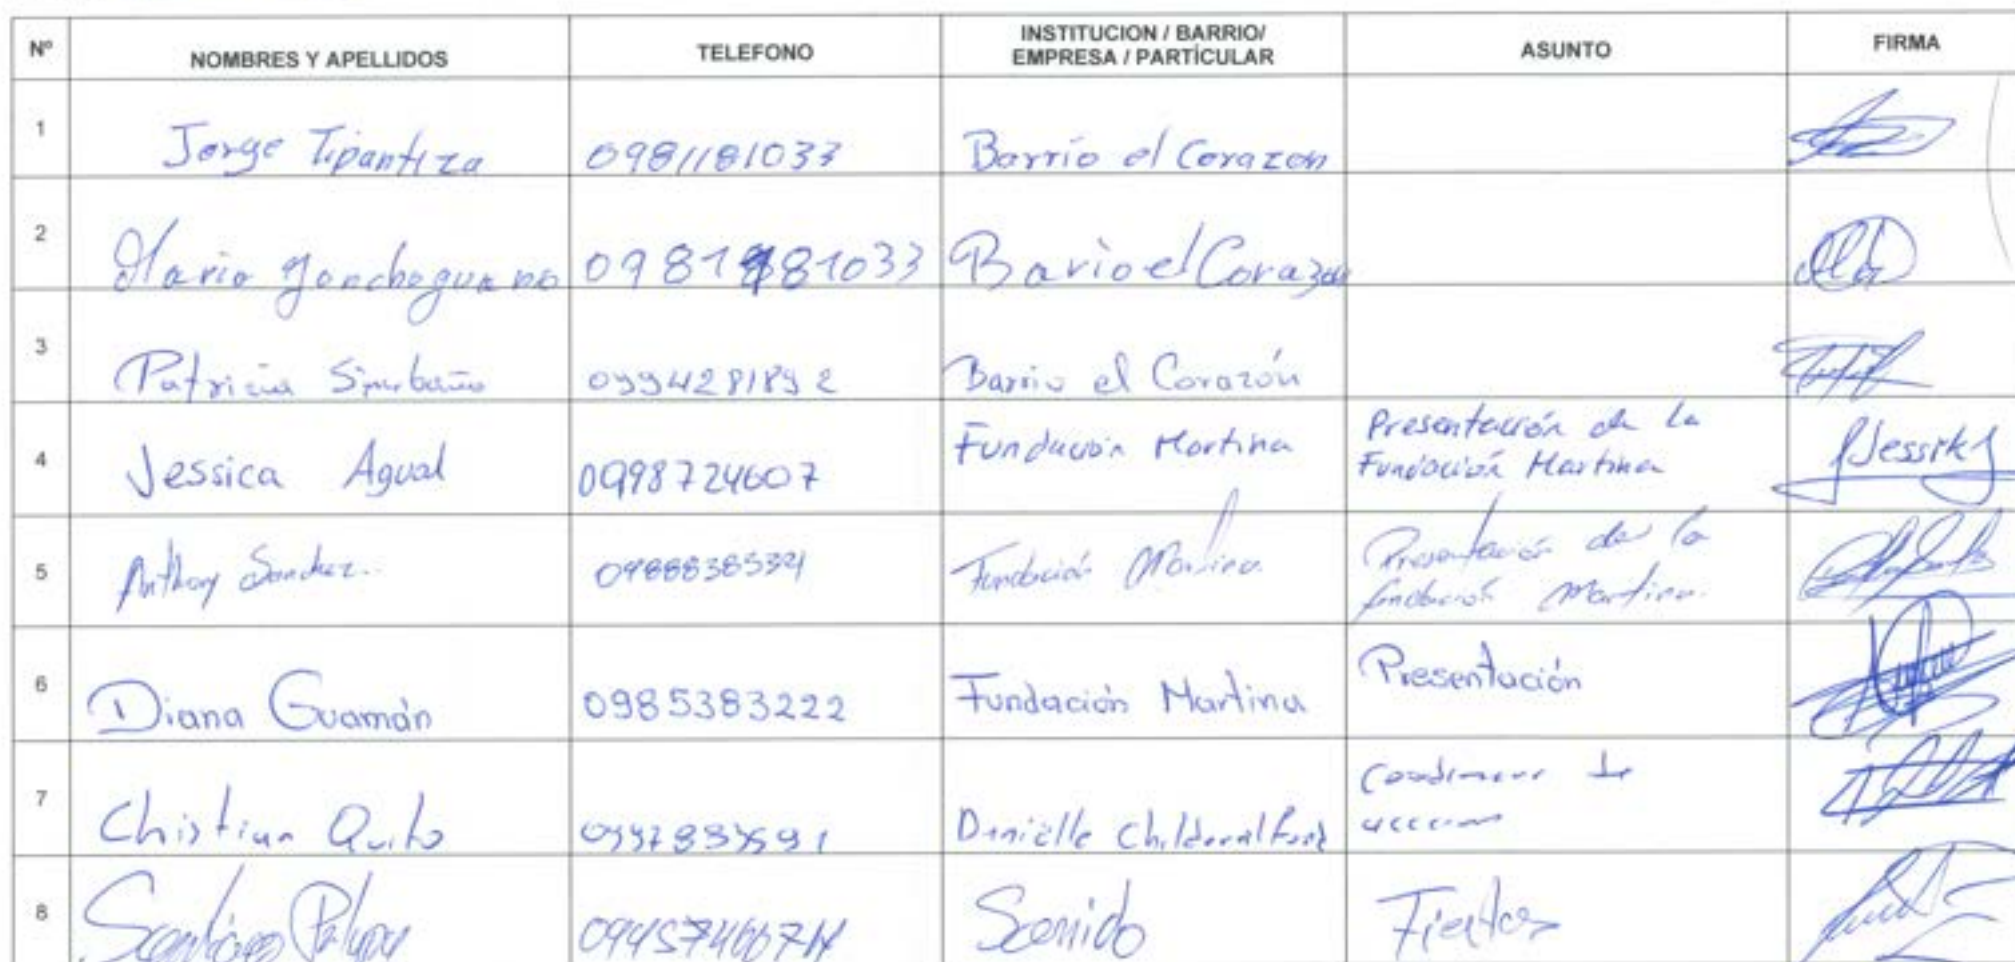 Nº NOMBRES Y APELLIDOS TELEFONO INSTITUCION / BARRIO/ EMPRESA / PARTÍCULAR ASUNTO FIRMA
1 Jorge Tipantiza 0981181033 Barrio el Corazon
2 Mario 0981181033 Bario el Corazon
3 Patricia 0994281892 Barrio el Corazón
4 Jessica Agual 0998724607 Fundación Martina Presentación de la
Fundación Martina
5 Anthony Sanchez. Fundación Martina Presentación de la
fundación Martina.
6 Diana Guamán 0985383222 Fundación Martina Presentación
7 Christian Quito Danielle
8 Sonido Fiestas